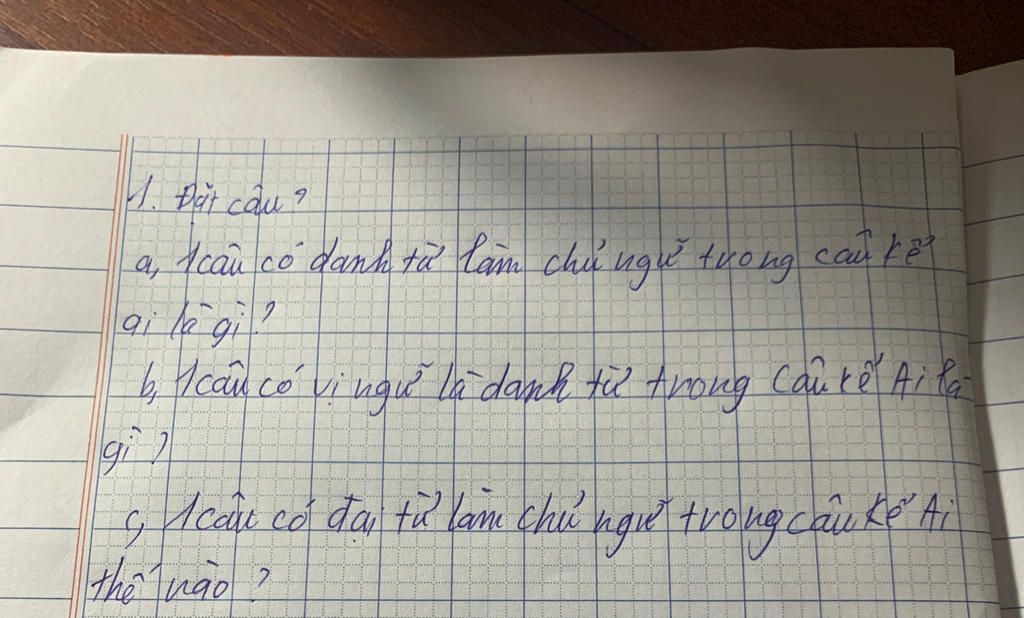 1. Đặt câu?
a, 1 câu có danh từ làm chủ ngữ trong câu kể
ai là gì?
b, 1 câu có vị ngữ là danh từ trong câu kể Ai là
gì?
c, 1 câu có đại từ làm chủ ngữ trong câu kể Ai
thế nào?